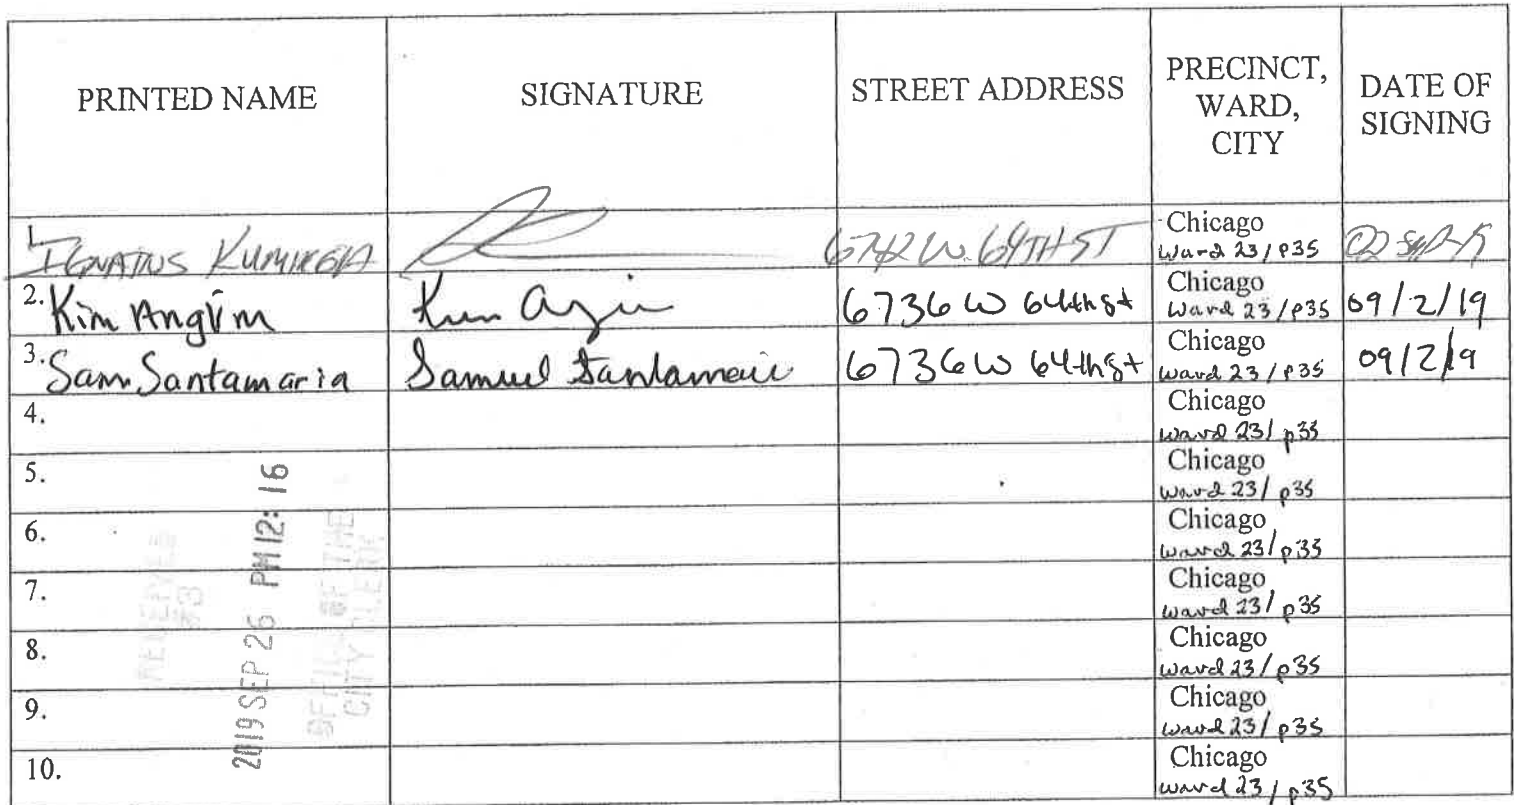 PRINTED NAME
SIGNATURE
STREET ADDRESS
PRECINCT,
WARD,
CITY
DATE OF
SIGNING
1.
IGNATIUS
6742 W. 64TH ST
Chicago
Ward 23/p35
02 Sep-19
2.
Kim Angvm
Kim
6736 W 64th st
Chicago
Ward 23/p35
09/2/19
3.
Sam Santamaria
Samuel Santamaria
6736 W 64th st
Chicago
Ward 23/p35
09/2/19
4.
Chicago
Ward 23/p35
5.
Chicago
Ward 23/p35
6.
Chicago
Ward 23/p35
7.
Chicago
Ward 23/p35
8.
Chicago
Ward 23/p35
9.
Chicago
Ward 23/p35
10.
Chicago
Ward 23/p35
RECEIVED
#3
2019 SEP 26 PM 12:16
OFFICE OF THE
CITY CLERK